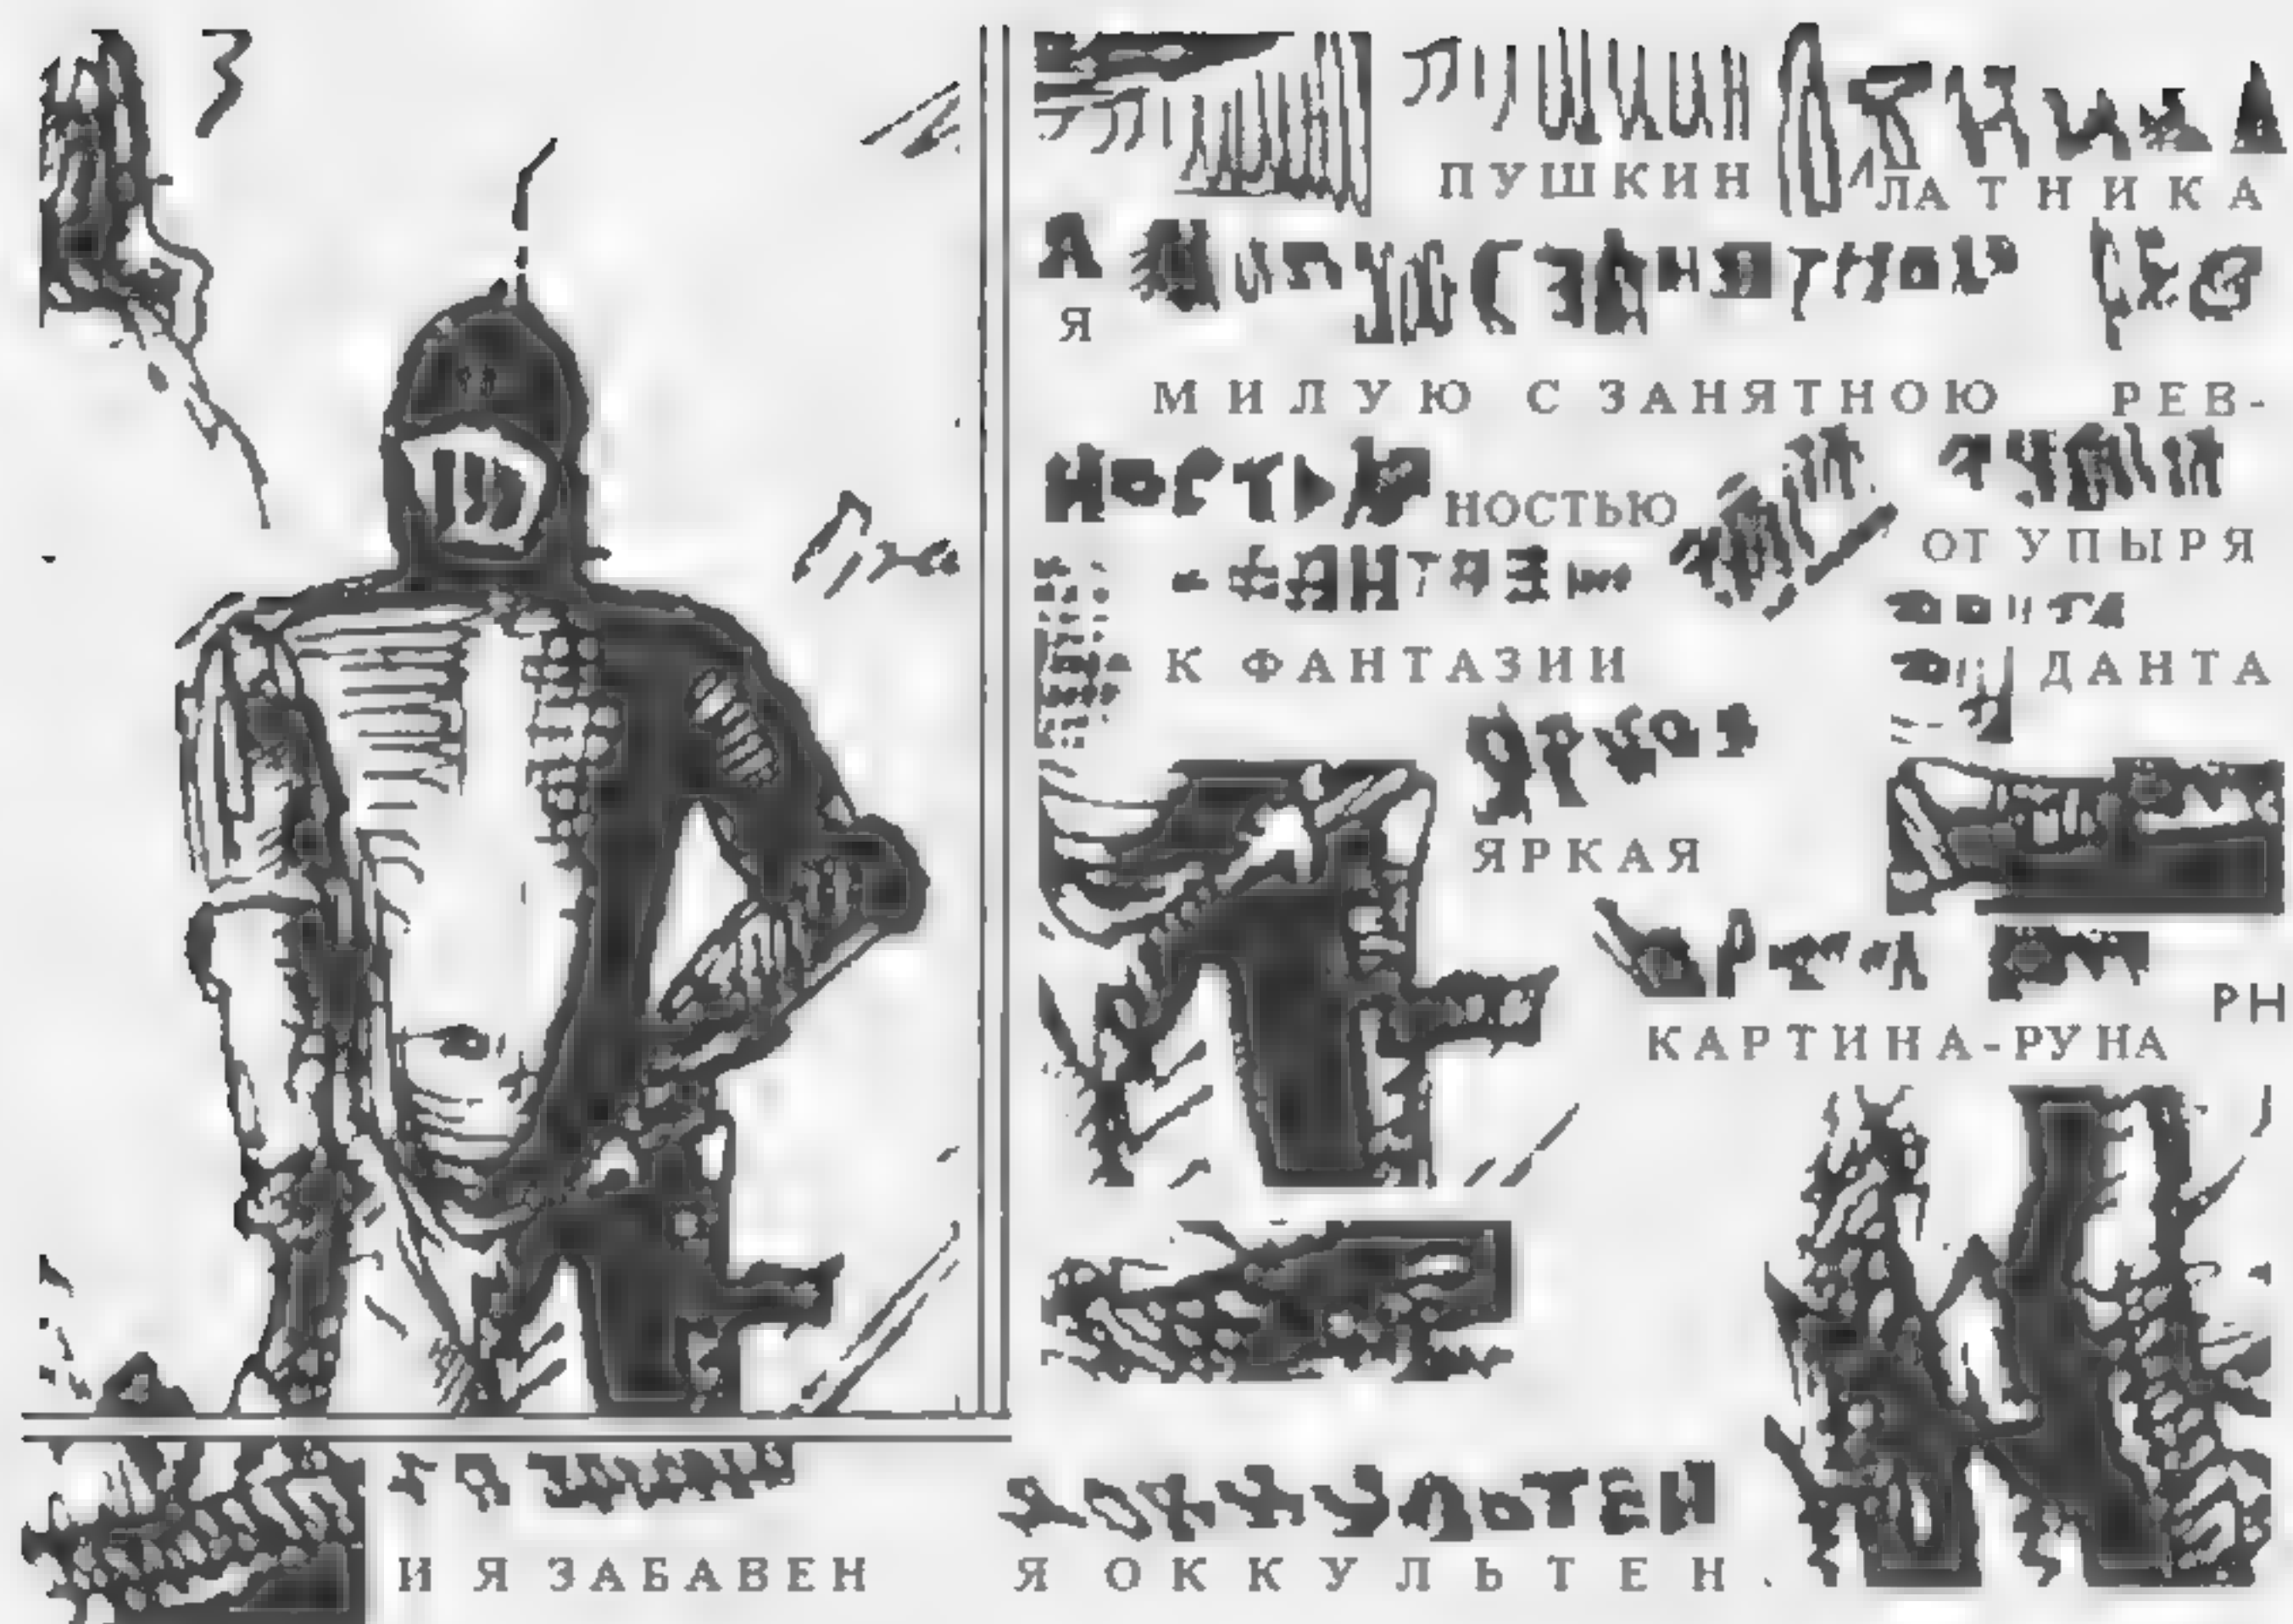 3
ПУШКИН ЛАТНИКА
Я
МИЛУЮ С ЗАНЯТНОЮ РЕВ-
НОСТЬЮ
ОТ УПЫРЯ
К ФАНТАЗИИ ДАНТА
ЯРКАЯ
КАРТИНА-РУНА РН
И Я ЗАБАВЕН Я ОККУЛЬТЕН.